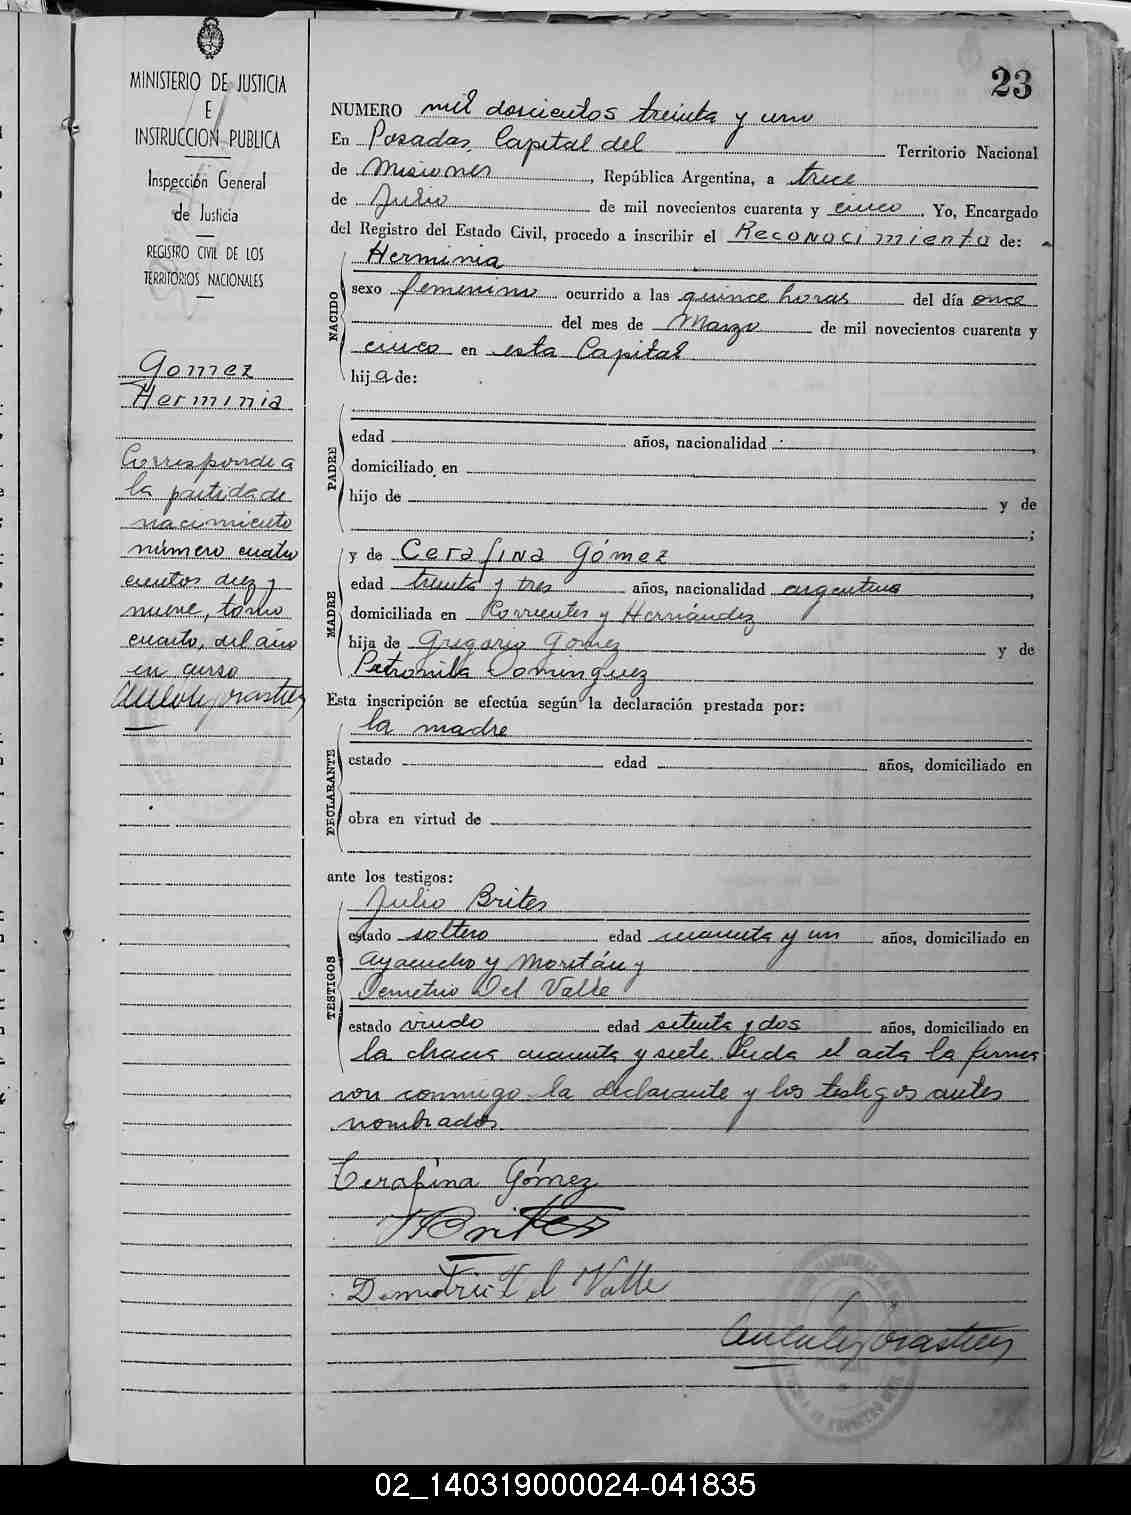 23
MINISTERIO DE JUSTICIA
E
INSTRUCCION PUBLICA
Inspección General
de Justicia
REGISTRO CIVIL DE LOS
TERRITORIOS NACIONALES
Gomez
Herminia
Corresponde a
la partida de
nacimiento
número cuatro
cientos diez y
nueve, tomo
cuarto, del año
en curso
NUMERO mil doscientos treinta y uno
En Posadas, Capital del Territorio Nacional
de Misiones, República Argentina, a trece
de Julio de mil novecientos cuarenta y cinco. Yo, Encargado
del Registro del Estado Civil, procedo a inscribir el Reconocimiento de:
NACIDO
Herminia
sexo femenino ocurrido a las quince horas del día once
del mes de Marzo de mil novecientos cuarenta y
cinco en esta Capital
hija de:
PADRE
edad años, nacionalidad
domiciliado en
hijo de y de
;
MADRE
y de Cerafina Gómez
edad treinta y tres años, nacionalidad argentina,
domiciliada en Corrientes y Hernández
hija de Gregorio Gomez y de
Petronila Dominguez
Esta inscripción se efectúa según la declaración prestada por:
DECLARANTE
la madre
estado edad años, domiciliado en
obra en virtud de
ante los testigos:
TESTIGOS
Julio Brites
estado soltero edad cuarenta y un años, domiciliado en
Ayacucho y Moritán y
Demetrio Del Valle
estado viudo edad setenta y dos años, domiciliado en
la chacra cuarenta y siete. Leida el acta la firma
ron conmigo la declarante y los testigos antes
nombrados.
Cerafina Gómez
Brites
Demetrio del Valle
02_140319000024-041835